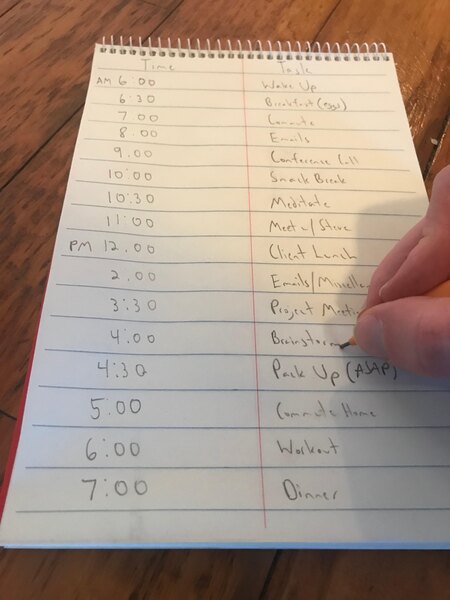 Time Task
AM 6:00 Wake Up
6:30 Breakfast
7.00 Commute
8.00 Emails
9.00 Conference Call
10:00 Snack Break
10:30 Meditate
11:00 Meet w/ Steve
PM 12.00 Client Lunch
2.00 Emails/Miscellan
3:30 Project Meetin
4:00 Brainstorm
4:30 Pack Up (ASAP)
5:00 Commute Home
6:00 Workout
7:00 Dinner